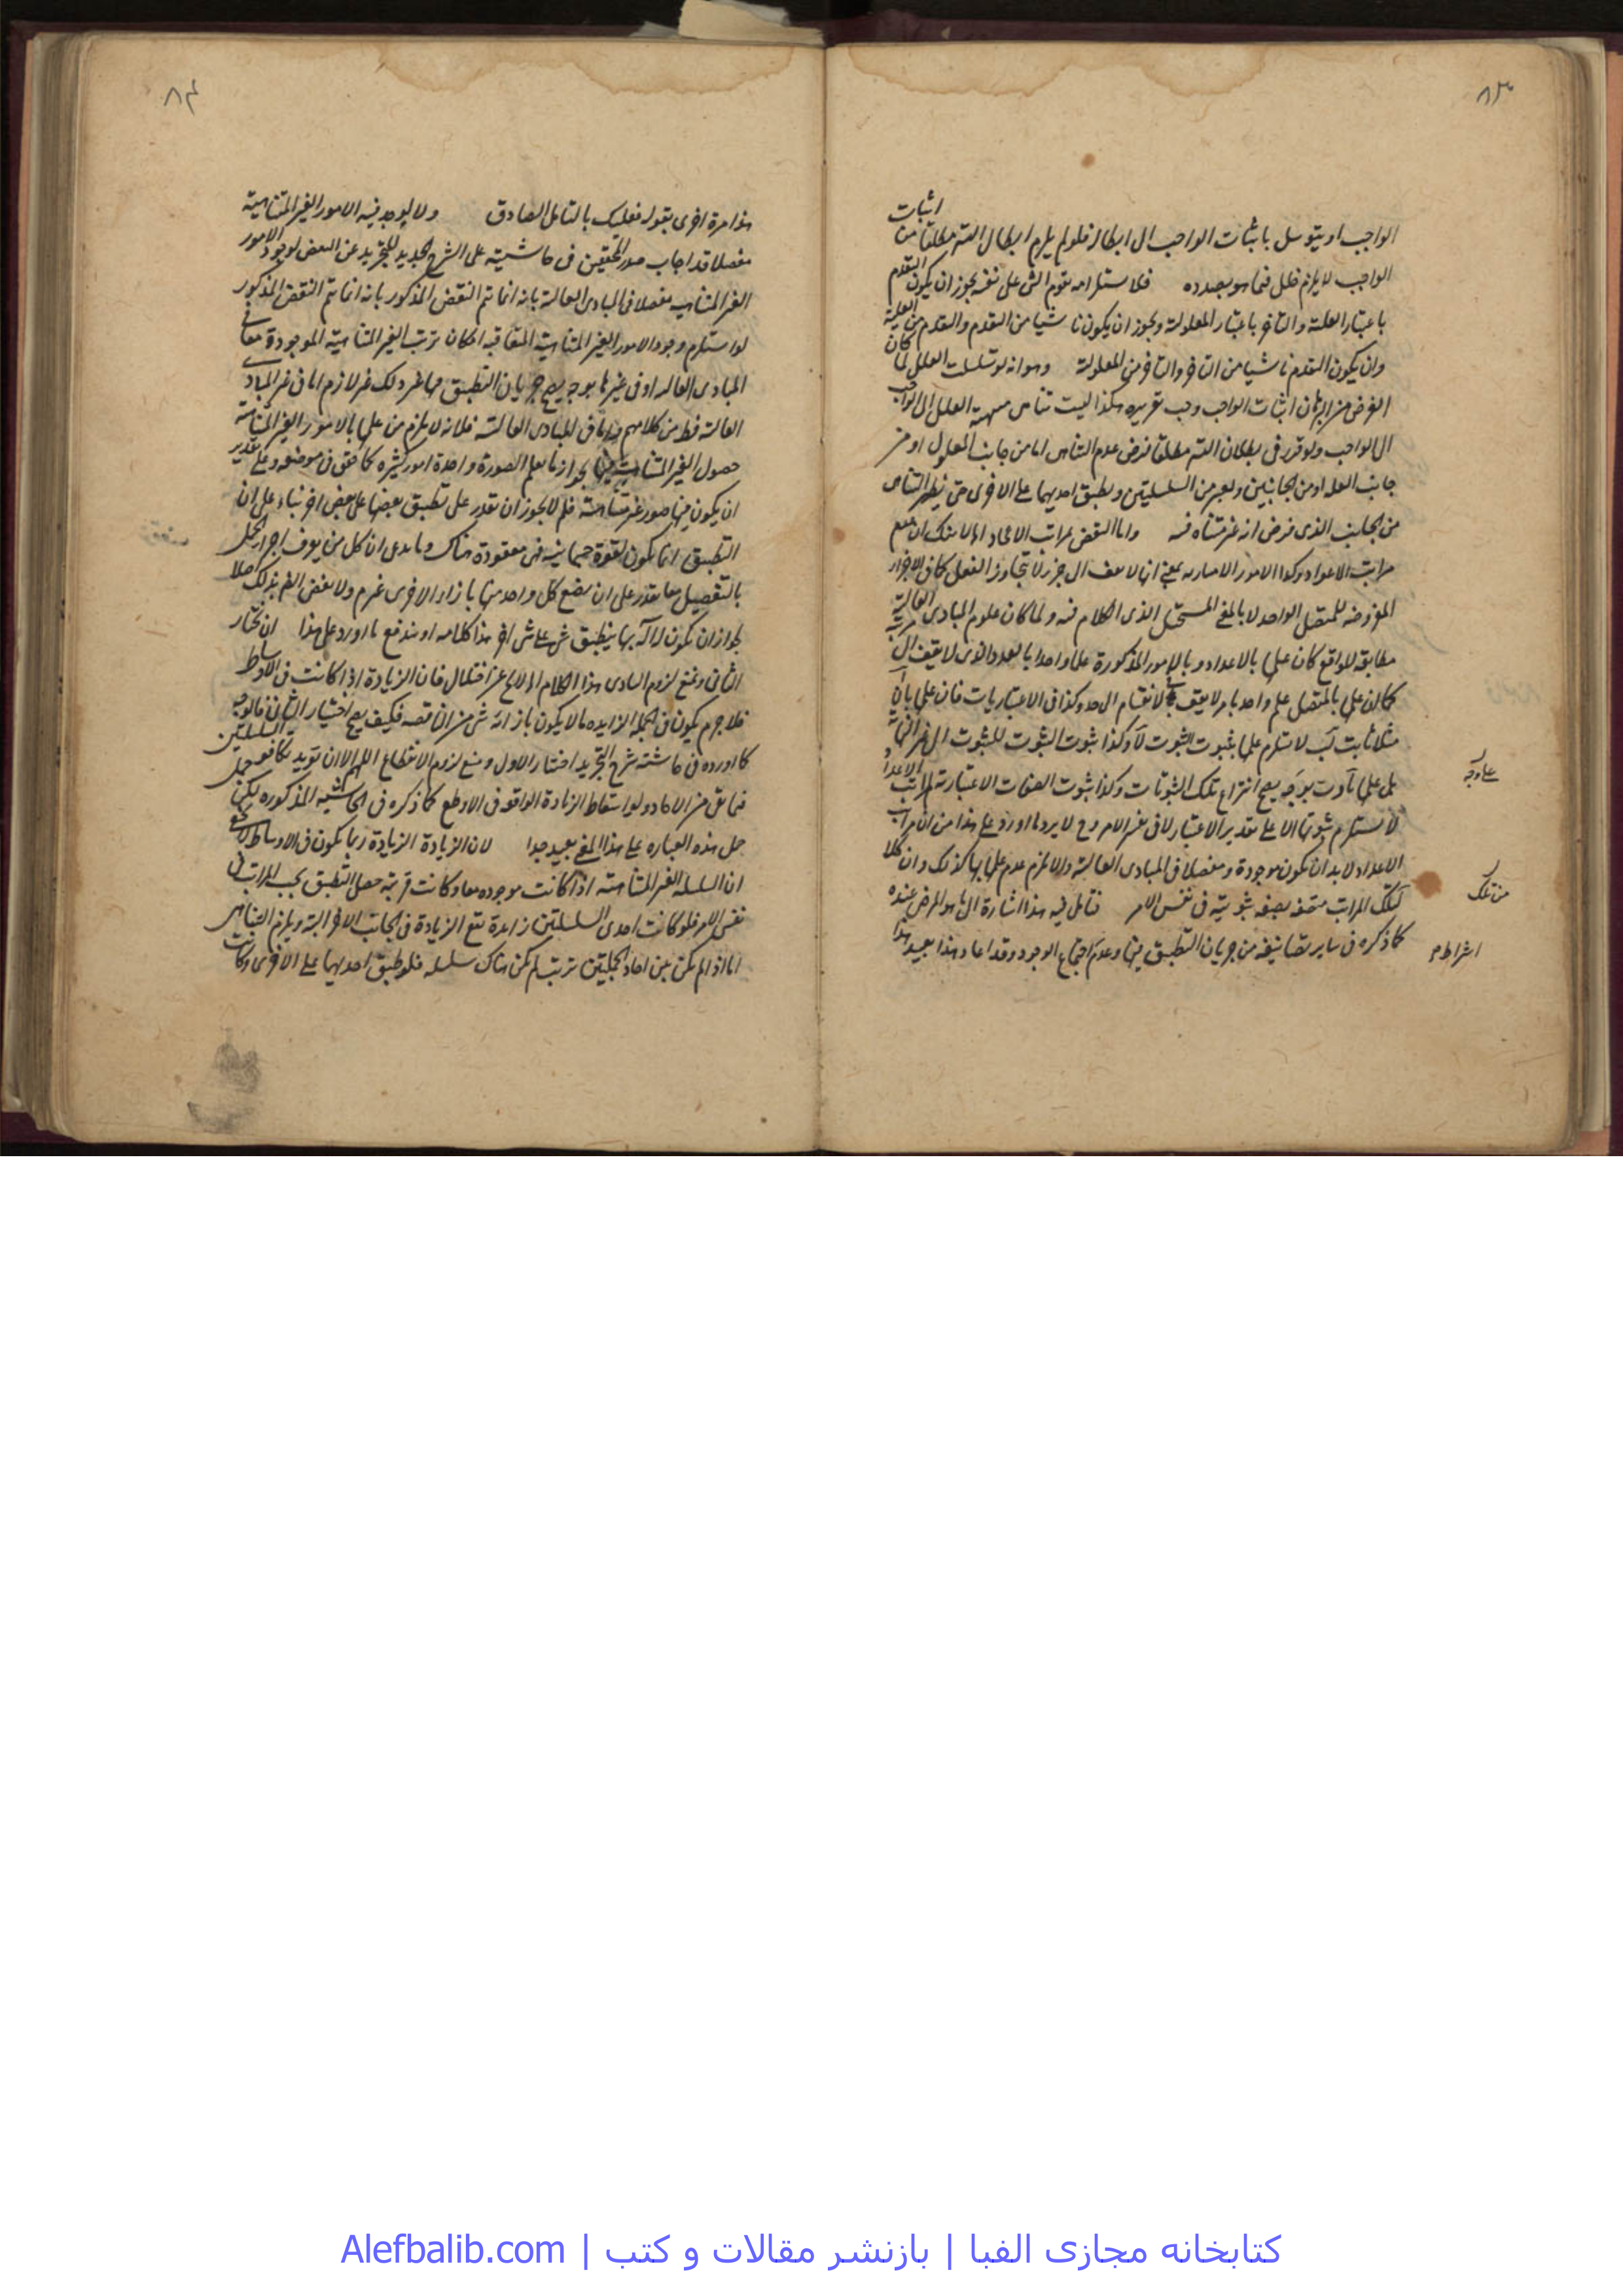 ٨٣
الواجب او يتوسل باثبات الواجب الى ابطاله فلو لم يلزم ابطال التسـ مطلقا من اثبات
الواجب لا يلزم خلل فيما هو بصدده فلاستلزامه تقدم الشئ على نفسه يجوز ان يكون التقدم
باعتبار العلية والتاخر باعتبار المعلولية ويجوز ان يكون ناشيا من التقدم والتقدم من العلية
وان يكون التقدم ناشيا من التاخر والتاخر من المعلولية وهو انه لو تسلسلت العلل لما كان
الغرض من البرهان اثبات الواجب وجب تقريره هكذا ليست تناهى سلسلة العلل الى الواجب
الى الواجب ولو قرر فى بطلان التسـ مطلقا فرض عدم التناهى اما من جانب المعلول او من
جانب العلة او من الجانبين ويعبر من السلسلتين ويطبق احديهما على الاخرى حتى يظهر التناهى
من الجانب الذى فرض انه غير متناه فيه واما النقض بمراتب الاعداد
مراتب الاعداد وكذا الامور بمعنى انها لا تقف الى جزء لا يتجاوز الفعل كما فى الاجزاء
المفروضه للمتصل الواحد لا بالمعنى المستحيل الذى الكلام فيه ولما كان علوم المبادى العالية
مطابقه للواقع كان علمها بالاعداد وبالامور المذكورة علما واحدا بالعدد الذى لا يقف الى مرتبة
كما ان علمها بالمتصل علم واحد بامر لا يقف الانقسام الى حد وكذا فى الاعتباريات فان علمها بان آ
مثلا ثابت لب لا ستلزم علمها بثبوت الثبوت لآ وكذا ثبوت الثبوت للثبوت الى غير النهاية
بل علمها بآ وب بوجه يصح انتزاع تلك الثبوتات وكذا ثبوت الصفات الاعتبارية لمراتب الاعداد
لا يستلزم ثبوتها الا على تقدير الاعتبار لا فى نفس الامر وح لا يرد ما اورد على هذا من ان مراتب
الاعداد لا بد ان يكون موجودة ومفصلا فى المبادى العالية والا يلزم عدم علمها بها كذلك وان كلا
لتلك المراتب متصفه بصفه ثبوتية فى نفس الامر فتامل فيه هذا اشارة الى ما هو المرضى عنده
كما ذكره فى ساير تصانيفه من جريان التطبيق فيها وعدم اجتماع الوجود وقد اعاد هذا بعيد هذا
على وجه
من تلك
اشتراط م
٨٤
هذا مرة اخرى بقوله فعليك بالتامل الصادق ولا يوجد فيه الامور الغير المتناهية
مفصلا قد اجاب صدر المحققين فى حاشيته على الشرح الجديد للتجريد عن النقض بوجود الامور
الغير المتناهيه مفصلا فى المبادى العالية بانه انما تم النقض المذكور بانه انما يتم النقض المذكور
لو استلزم وجود الامور الغير المتناهية المتعاقبه امكان ترتب الغير المتناهية الموجودة معا فى
المبادى العاليه او فى غيرها بوجه يصح جريان التطبيق فيها غير ذلك غير لازم اما فى غير المبادى
العالية فظ من كلامهم واما فى المبادى العالية فلانه لا يلزم من علمها بالامور الغير المتناهية
حصول الغير المتناهية فيها لجواز ما يعلم الصورة واحدة امور كثيره كما حقق فى موضعه وعلى تقدير
ان يكون فيها صور غير متناهية فلم لا يجوز ان تقدر على تطبيق بعضها على بعض اخر بناء على ان
التطبيق انما يكون لقوة جسمانية فهى مفقودة هناك وما يدعى ان كل من يعرف اجزاء الكل
بالتفصيل معا يقدر على ان يضع كل واحد منها بازاء الاخرى غير م ولا ينقض الغير بذلك اصلا
لجواز ان يكون له آلة بها ينطبق شئ على شئ اخر هذا كلامه او يندفع ما اورد على هذا ان نختار
الثانى ونمنع لزوم التساوى هذا الكلام لا يخلو عن اختلال فان الزيادة اذا كانت فى الاوساط
فلا جرم يكون فى الجملة الزايده ما لا يكون بازائه شئ من الناقصه فكيف يصح اختيار الثانى فالوجه
كما اورده فى حاشية شرح التجريد اختيار الاول ومنع لزوم الانقطاع اللهم الا ان يريد بكافو السلسلتين
فيما بقى من الاحاد ولو اسقاط الزيادة الواقعه فى الاوسط كما ذكره فى الحاشية المذكوره لكن حمل
حمل هذه العباره على هذا المعنى بعيد جدا لان الزيادة الزيادة ربما يكون فى الاوساط
ان السلسله الغير المتناهية اذا كانت موجوده معا وكانت مرتبة حصل التطبيق بحسب المراتب فى
نفس الامر فلو كانت احدى السلسلتين زايدة تقع الزيادة فى الجانب الاخر البتة ويلزم التناهى
اما اذا لم يكن بين احاد الجملتين ترتب لم يكن هناك سلسله فلو طبق احديهما على الاخرى وكانت
کتابخانه مجازی الفبا | بازنشر مقالات و کتب | Alefbalib.com